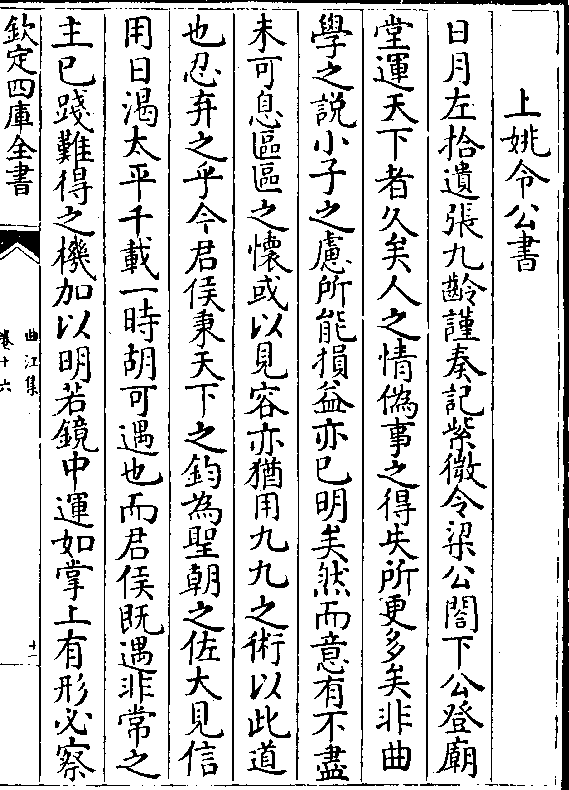 上姚令公書
日月左拾遺張九齡謹奏記紫微令梁公閤下公登廟
堂運天下者久矣人之情偽事之得失所更多矣非曲
學之説小子之慮所能損益亦已明矣然而意有不盡
未可息區區之懐或以見容亦猶用九九之術以此道
也忍弃之乎今君侯秉天下之鈞為聖朝之佐大見信
用日渴太平千載一時胡可遇也而君侯既遇非常之
主已踐難得之機加以明若鏡中運如掌上有形必察
欽定四庫全書
曲江集
卷十六
十二